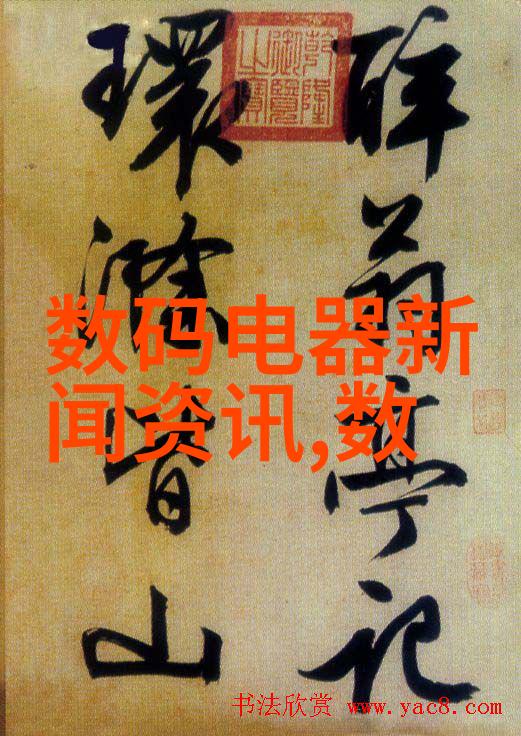 醉翁亭记
环滁皆山
乾隆
御览
之宝
数码电器新
闻资讯,数
书法欣赏 www.yac8.com